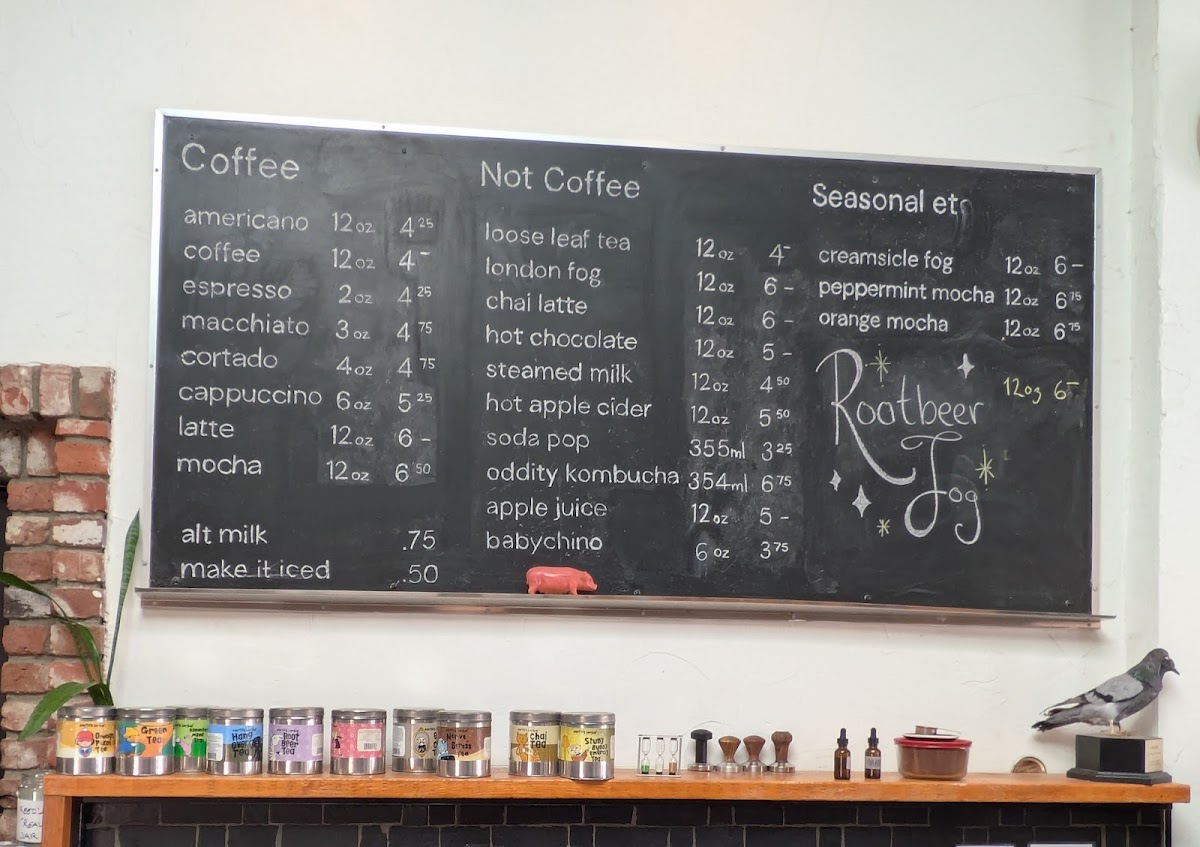 Coffee
americano 12oz 4 25
coffee 12oz 4 -
espresso 2oz 4 25
macchiato 3oz 4 75
cortado 4oz 4 75
cappuccino 6oz 5 25
latte 12oz 6 -
mocha 12oz 6 50
alt milk .75
make it iced .50
Not Coffee
loose leaf tea 12oz 4 -
london fog 12oz 6 -
chai latte 12oz 6 -
hot chocolate 12oz 5 -
steamed milk 12oz 4 50
hot apple cider 12oz 5 50
soda pop 355ml 3 25
oddity kombucha 354ml 6 75
apple juice 12oz 5 -
babychino 6oz 3 75
Seasonal etc
creamsicle fog 12oz 6 -
peppermint mocha 12oz 6 75
orange mocha 12oz 6 75
Rootbeer 12oz 6 -
Fog
Green
Tea
Root
Beer
Tea
Chai
Tea